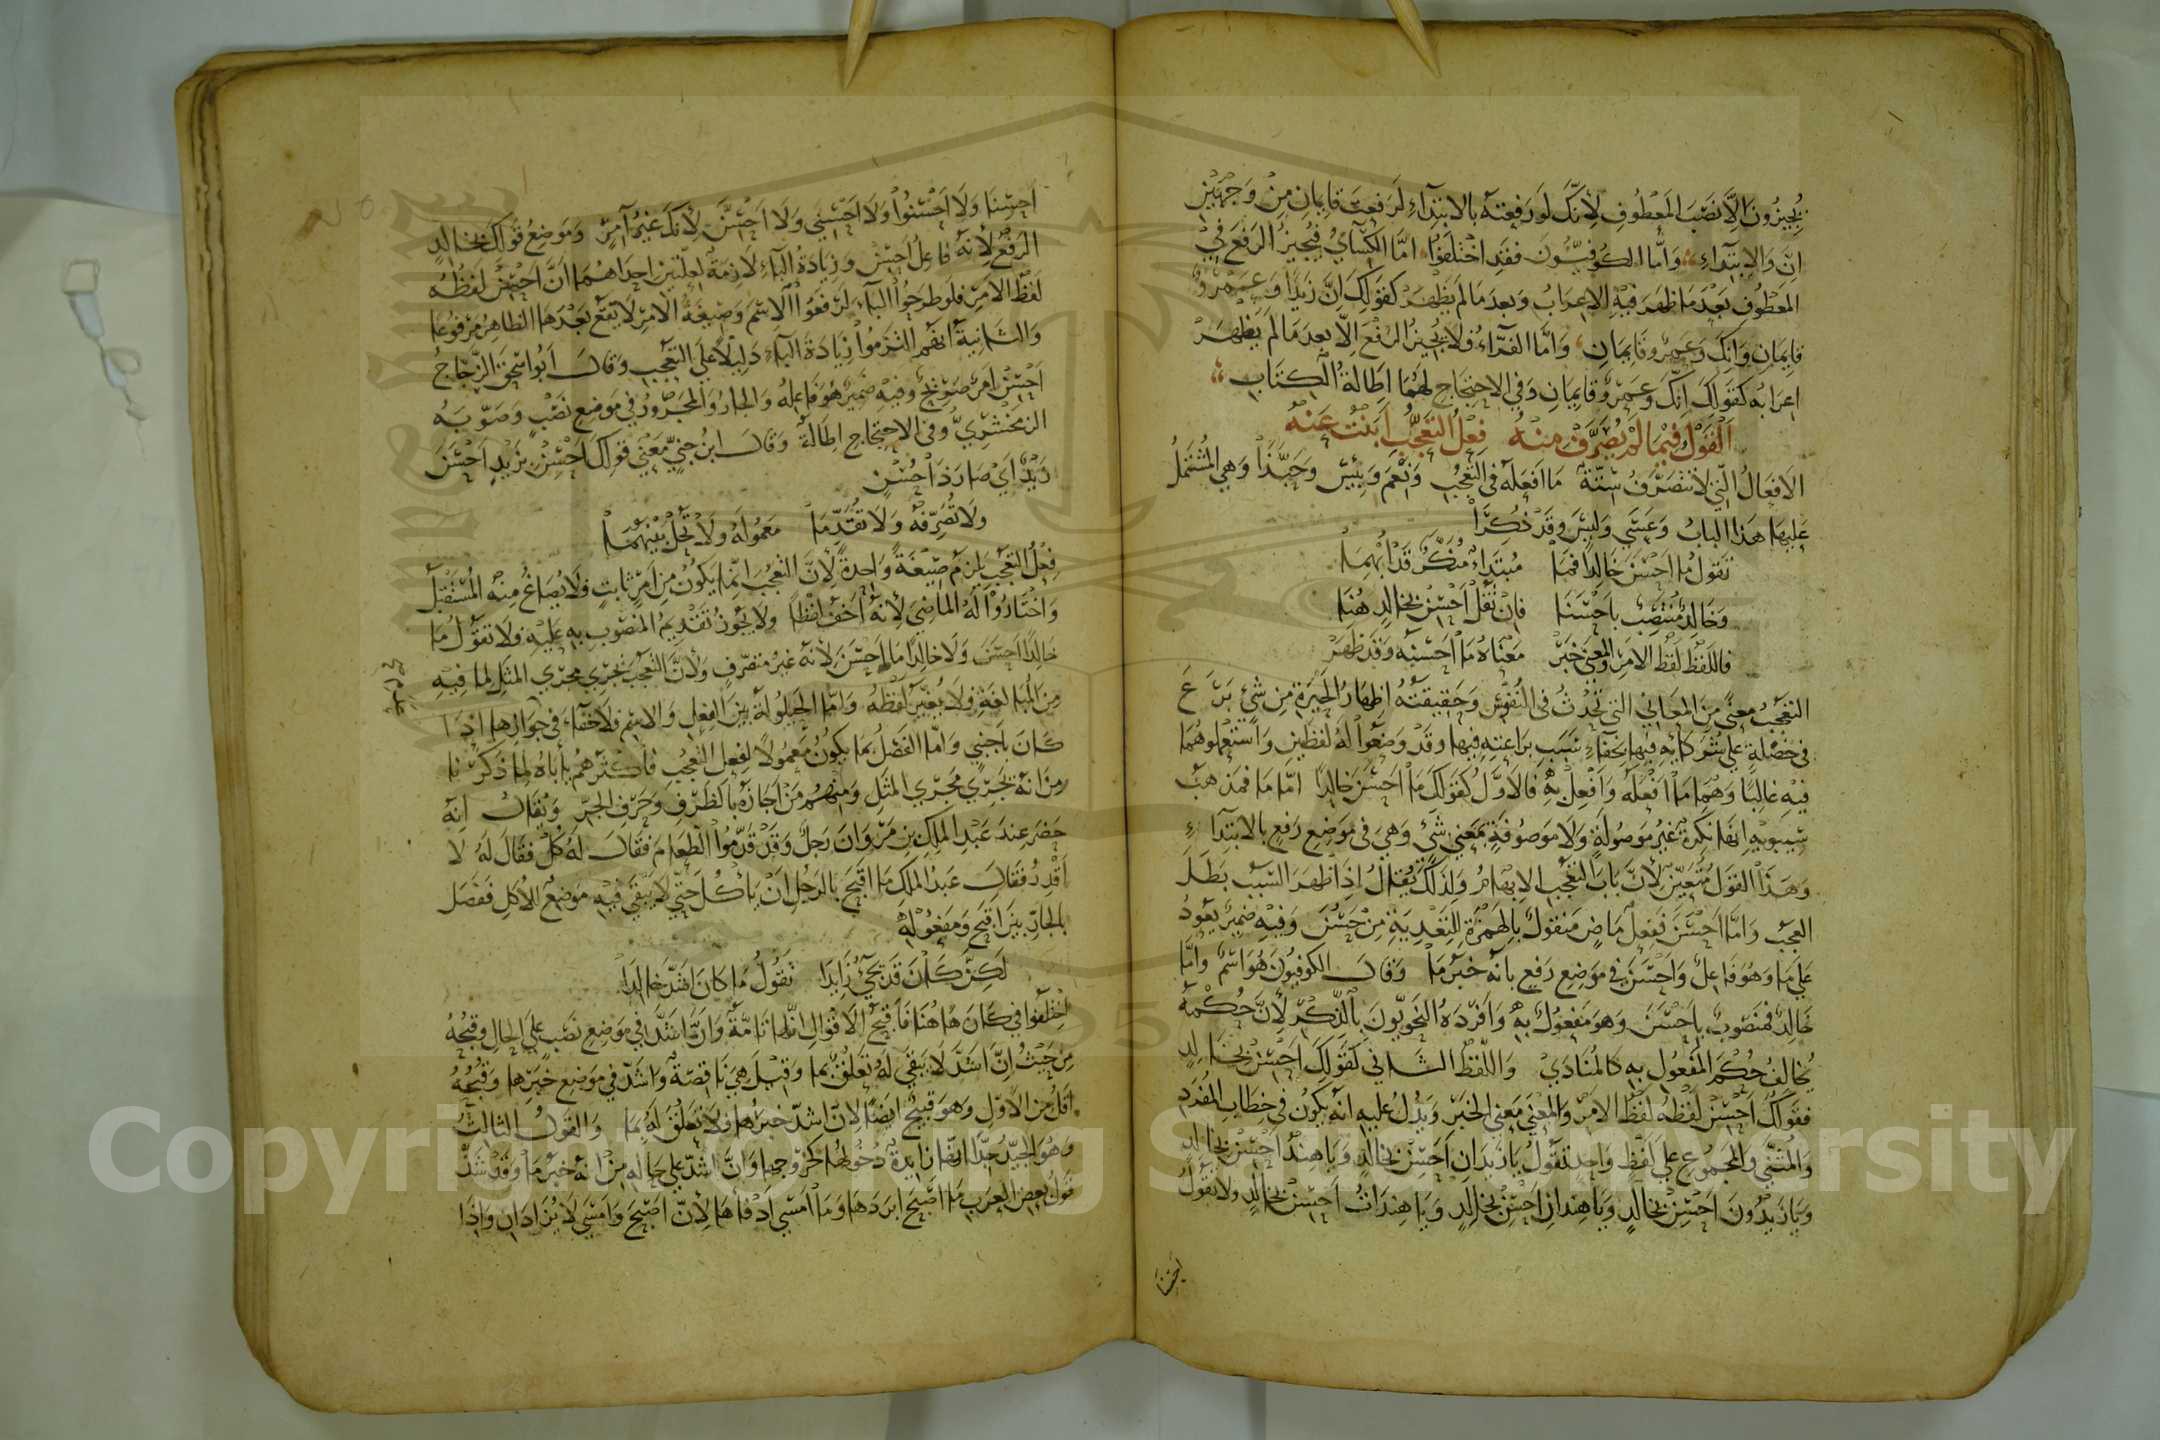 يجيزون الا نصب المعطوف لأنك لو رفعته بالابتداء لرفعت قايمان من وجهين
ان والابتداء وأما الكوفيون فقد اختلفوا اما الكسائي فيجيز الرفع في
المعطوف بعد ما ظهر فيه الاعراب وبعد ما لم يظهر كقولك ان زيدا وعمرو
قايمان وانك وعمرو قايمان وأما الفراء فلا يجيز الرفع الا بعد ما لم يظهر
اعرابه كقولك انك وعمرو قايمان وفي الاحتجاج لهما اطالة الكتاب
القول فيما لم يصرف منه فعل التعجب ابنت عنه
الافعال التي لا تتصرف ستة ما افعله في التعجب ونعم وبئس وحبذا وهي المشتمل
عليها هذا الباب وعسى وليس وقد ذكرا
تقول ما احسن خالدا فما مبتداء منكر قد ابهما
وخالد منتصب باحسنا فان تقل احسن بخالد هنا
فاللفظ لفظ الامر والمعنى خبر معناه ما احسنه وقد ظهر
التعجب معنى من المعاني التي تحدث في النفوس وحقيقته اظهار الحيرة من شئ برع
في خصلة على شركايه فيها بخفاء سبب براعته فيها وقد وضعوا له لفظين واستعملوهما
فيه غالبا وهما ما افعله وافعل به فالاول كقولك ما احسن خالدا اما ما فمذهب
سيبويه انها نكرة غير موصولة ولا موصوفة بمعنى شئ وهي في موضع رفع بالابتداء
وهذا القول متعين لأن باب التعجب الابهام ولذلك يقال اذا ظهر السبب بطل
العجب واما احسن ففعل ماض منقول بالهمزة للتعدية من حسن وفيه ضمير يعود
على ما وهو فاعل واحسن في موضع رفع بانه خبر ما وقال الكوفيون هو اسم واما
خالد فمنصوب باحسن وهو مفعول به وافرده النحويون بالذكر لأن حكمه
يخالف حكم المفعول به كالمنادى واللفظ الثاني كقولك احسن بخالد
فقولك احسن لفظه لفظ الامر والمعنى معنى الخبر ويدل عليه انه يكون في خطاب المفرد
والمثنى والمجموع على لفظ واحد تقول يا زيدان احسن بخالد ويا هند احسن بخالد
ويا زيدون احسن بخالد ويا هندان احسن بخالد ويا هندات احسن بخالد ولا تقول
احسنا
احسنا ولا احسنوا ولا احسني ولا احسن لأنك غير آمر وموضع قولك بخالد
الرفع لأنه فاعل احسن وزيادة الباء لازمة لعلتين احداهما ان احسن لفظه
لفظ الامر فلو طرحوا الباء لرفعوا الاسم وصيغة الامر لا يقع بعدها الظاهر مرفوعا
والثانية انهم التزموا زيادة الباء دليلا على التعجب وقال ابو اسحق الزجاج
احسن امر صريح وفيه ضمير هو فاعله والجار والمجرور في موضع نصب وصوبه
الزمخشري وفي الاحتجاج اطالة وقال ابن جني معنى قولك احسن بزيد احسن
زيد اي صار ذا حسن
ولا تصرفه ولا تقدما معموله ولا تحل بينهما
فعل التعجب يلزم صيغة واحدة لأن التعجب انما يكون من امر ثابت فلا يصاغ منه المستقبل
واختاروا له الماضي لأنه اخف لفظا ولا يجوز تقديم المنصوب به عليه فلا تقول ما
خالدا احسن ولا خالدا ما احسن لأنه غير متصرف ولأن التعجب يجري مجرى المثل لما فيه
من المبالغة فلا يغير لفظه واما الحيلولة بين الفعل والاسم فلا خفاء في جوازها اذا
كان باجنبي واما الفصل بما يكون معمولا لفعل التعجب فأكثرهم يأباه لما ذكرنا
من انه يجري مجرى المثل ومنهم من اجازه بالظرف وحرف الجر ويقال انه
حضر عند عبد الملك بن مروان رجل وقد قدموا الطعام فقال له كل فقال له لا
اقدر فقال عبد الملك ما اقبح بالرجل ان يأكل حتى لا يبقى فيه موضع للأكل ففصل
بالجار بين اقبح ومفعوله
لكن كان قد تجئ زايدا تقول ما كان اشد خالدا
اختلفوا في كان هاهنا فأقبح الاقوال انها تامة وان اشد في موضع نصب على الحال وقبحه
من حيث ان اشد لا يبقى له تعلق بما وقيل هي ناقصة واشد في موضع خبرها وقبحه
اقل من الاول وهو قبيح ايضا لأن اشد خبرها فلا تعلق له بما والقول الثالث
وهو الجيد جدا انها زايدة دخولها كخروجها وان اشد على حاله من انه خبر ما وقد شذ
قول بعض العرب ما اصبح ابردها وما امسى ادفأها لأن اصبح وامسى لا يزادان واذا